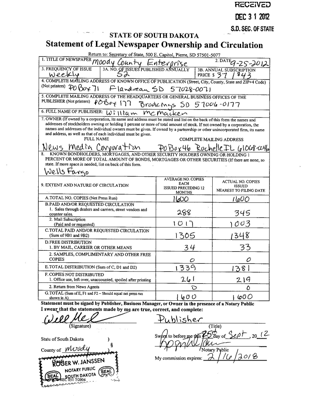 RECEIVED
DEC 31 2012
S.D. SEC. OF STATE
STATE OF SOUTH DAKOTA
Statement of Legal Newspaper Ownership and Circulation
Return to: Secretary of State, 500 E. Capitol, Pierre, SD 57501-5077
1. TITLE OF NEWSPAPER Moody County Enterprise 2. DATE 9-25-2012
3. FREQUENCY OF ISSUE weekly 3A. NO. OF ISSUES PUBLISHED ANNUALLY 52 3B. ANNUAL SUBSCRIPTION PRICE $ 37 / $43
4. COMPLETE MAILING ADDRESS OF KNOWN OFFICE OF PUBLICATION (Street, City, County, State and ZIP+4 Code)
(Not printers) PO Box 71 Flandreau SD 57028-0071
5. COMPLETE MAILING ADDRESS OF THE HEADQUARTERS OR GENERAL BUSINESS OFFICES OF THE
PUBLISHER (Not printers) PO Box 177 Brookings SD 57006-0177
6. FULL NAME OF PUBLISHER: William McMacken
FULL NAME COMPLETE MAILING ADDRESS
News Media Corporation PO Box 46 Rochelle IL 61068-0046
8. KNOWN BONDHOLDERS, MORTGAGEES, AND OTHER SECURITY HOLDERS OWNING OR HOLDING 1
PERCENT OR MORE OF TOTAL AMOUNT OF BONDS, MORTGAGES OR OTHER SECURITIES (If there are none, so
state. If more space is needed, list on back of this form.
Wells Fargo
9. EXTENT AND NATURE OF CIRCULATION
AVERAGE NO. COPIES EACH ISSUE PRECEDING 12 MONTHS
ACTUAL NO. COPIES ISSUED NEAREST TO FILING DATE
A. TOTAL NO. COPIES (Net Press Run) 1600 1600
B. PAID AND/OR REQUESTED CIRCULATION
1. Sales through dealers and carriers, street vendors and counter sales 288 345
2. Mail Subscription (Paid and/or requested) 1017 1003
C. TOTAL PAID AND/OR REQUESTED CIRCULATION (Sum of 9B1 and 9B2) 1305 1348
D. FREE DISTRIBUTION
1. BY MAIL, CARRIER OR OTHER MEANS 34 33
2. SAMPLES, COMPLIMENTARY AND OTHER FREE COPIES 0 0
E. TOTAL DISTRIBUTION (Sum of C, D1 and D2) 1339 1381
F. COPIES NOT DISTRIBUTED
1. Office use, left over, unaccounted, spoiled after printing 261 219
2. Return from News Agents 0 0
G. TOTAL (Sum of E, F1 and F2 - Should equal net press run shown in A) 1600 1600
Statement must be signed by Publisher, Business Manager, or Owner in the presence of a Notary Public
I swear that the statements made by me are true, correct, and complete:
Publisher
(Signature) (Title)
State of South Dakota )
County of Moody
Sworn to before me this 25 day of Sept, 20 12
Notary Public
My commission expires: 2/16/2018
ROGER W. JANSSEN
NOTARY PUBLIC
SOUTH DAKOTA
SEAL SEAL